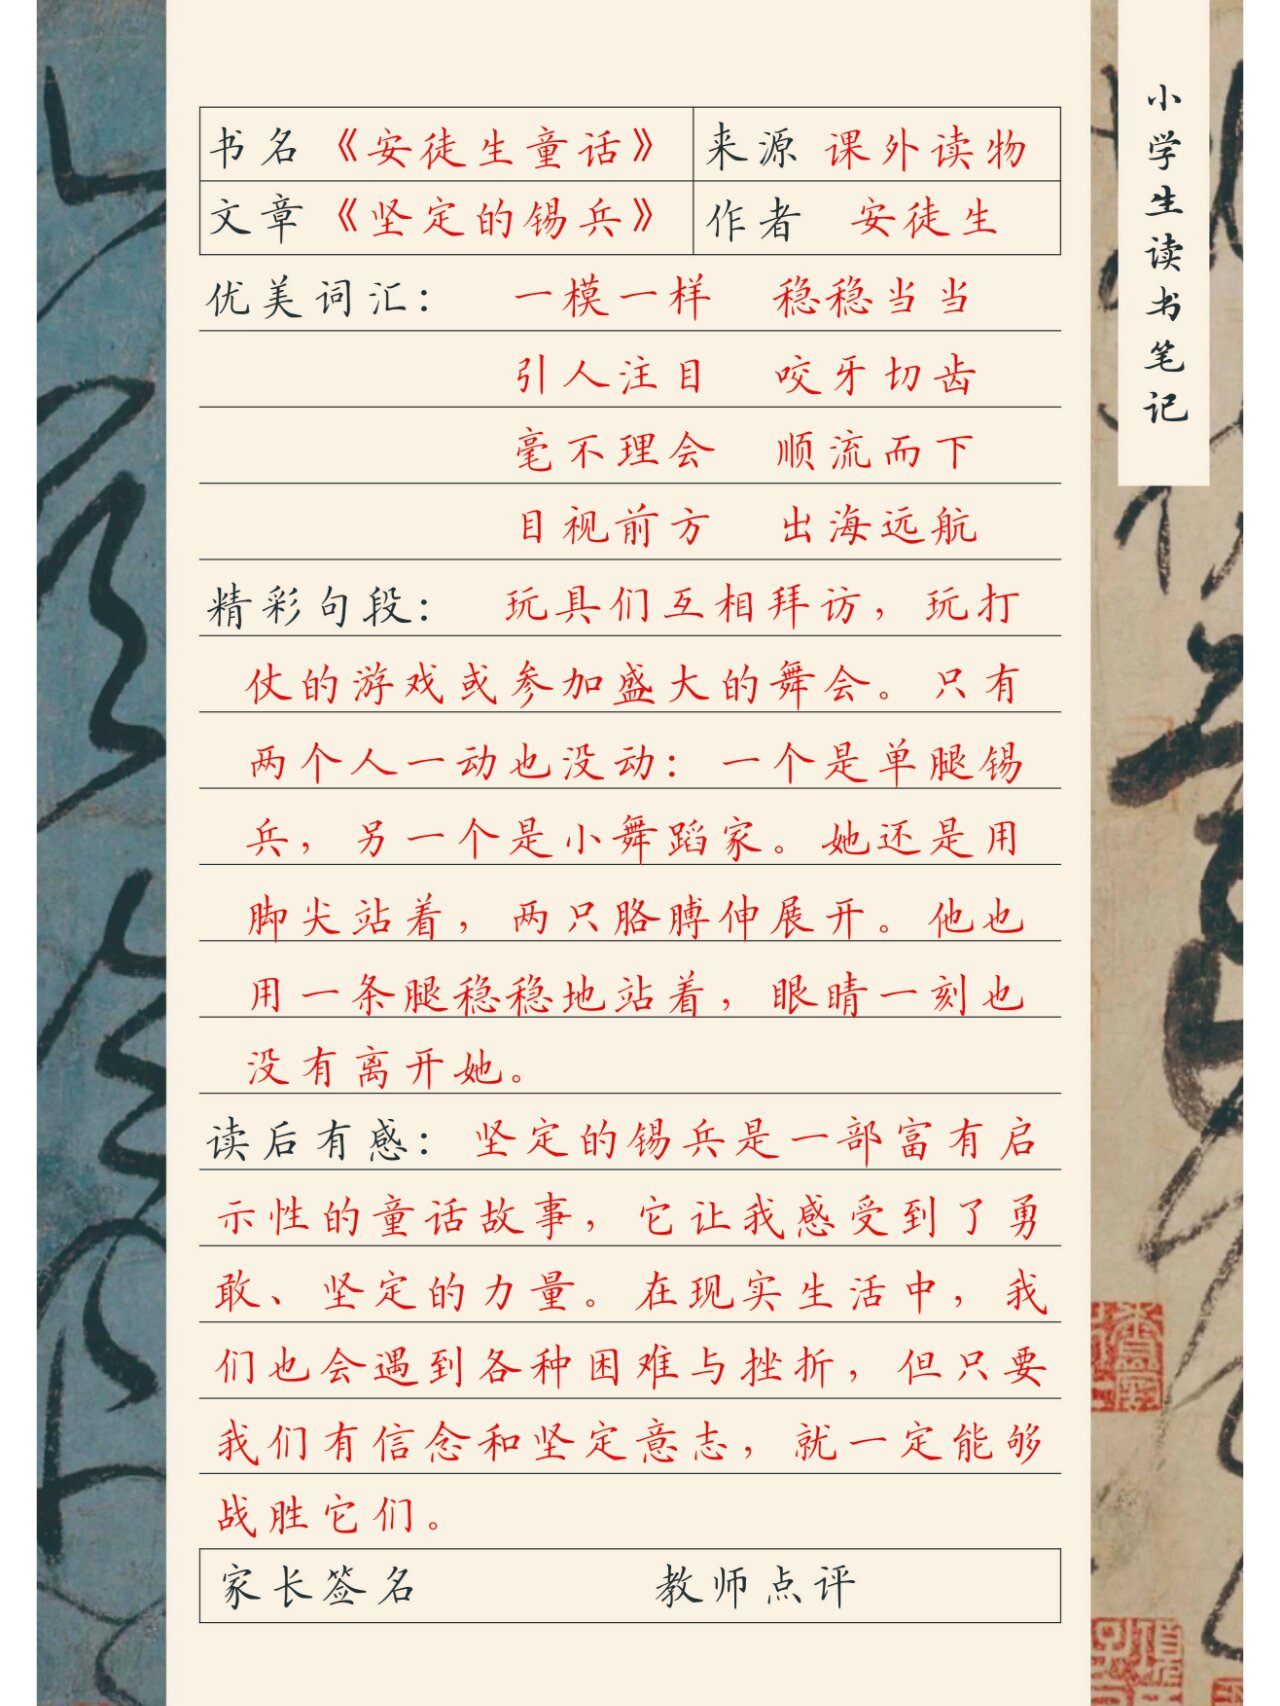 小学生读书笔记
书名《安徒生童话》 来源 课外读物
文章《坚定的锡兵》 作者 安徒生
优美词汇： 一模一样 稳稳当当
引人注目 咬牙切齿
毫不理会 顺流而下
目视前方 出海远航
精彩句段： 玩具们互相拜访，玩打
仗的游戏或参加盛大的舞会。只有
两个人一动也没动：一个是单腿锡
兵，另一个是小舞蹈家。她还是用
脚尖站着，两只胳膊伸展开。他也
用一条腿稳稳地站着，眼睛一刻也
没有离开她。
读后有感：坚定的锡兵是一部富有启
示性的童话故事，它让我感受到了勇
敢、坚定的力量。在现实生活中，我
们也会遇到各种困难与挫折，但只要
我们有信念和坚定意志，就一定能够
战胜它们。
家长签名 教师点评